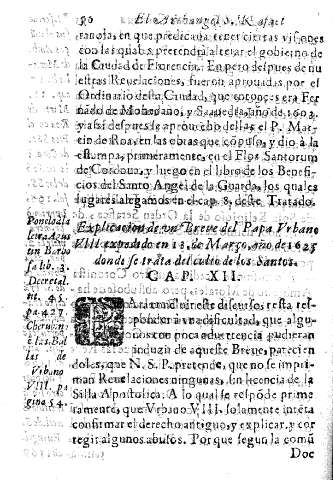 90 El Archangel S. Rafael
ranoja, en que predicaua tener ciertas visiones
con las quales pretendia alterar el gouierno de
la Ciudad de Florencia. Empero despues de nu
estras Reuelaciones, fueron aprouadas por el
Ordinario desta Ciudad, que entonces era Fer
nãdo de Mohedano, y Saauedra, año de 1603.
y assi despues se aprouecho dellas el P. Mar-
tin de Roa, en las obras que cõpuso, y dio à la
estampa, primeramente, en el Flos Santorum
de Cordoua, y luego en el libro de los Benefi-
cios del Santo Angel de la Guarda, los quales
lugares alegamos en el cap. 8. deste Tratado.
Explicacion de vn Breue del Papa Vrbano
VIII. expedido en 13. de Março, año de 1625
donde se trata del culto de los Santos.
CAP. XII.
PAra concluir este discurso, resta res-
ponder à vna dificultad, que algu-
nos con poca aduertencia pudieran
induzir de aqueste Breue, parecien
doles, que N. S. P. pretende, que no se impri-
man Reuelaciones ningunas, sin licencia de la
Silla Apostolica. A lo qual se respõde prime
ramente, que Vrbano VIII. solamente intẽta
confirmar el derecho antiguo, y explicar, y cor
regir algunos abusos. Porque segun la comũ
Doc
Augus
tin Barbo
sa lib. 3.
Decretal.
nt. 45.
pag. 427.
Cherubin.
las
de
Vrbano
VIII. pa
gina 54.